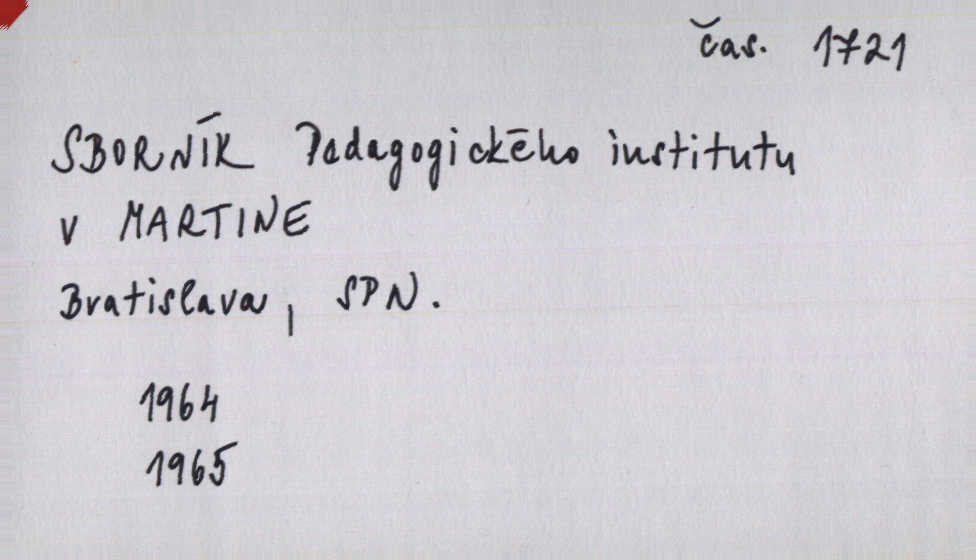 čas. 1721
SBORNÍK Pedagogického institutu
v MARTINE
Bratislava, SPN.
1964
1965